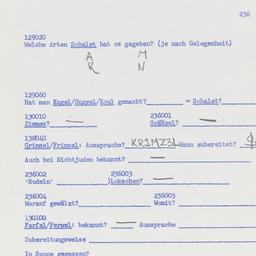 236
129020
Welche Arten Schalet hat es gegeben? (je nach Gelegenheit)
A M
K N
129060
Hat man Kugel/Guggel/Koul gemacht? = Schalet?
130010 236001
Zimmes? — Schünzel? —
138040
Grimsel/Frimsel: Aussprache? KRIMZ3L Wann zubereitet? $
Auch bei Nichtjuden bekannt? —
236002 236003
'Nudeln' )Lokschen? —
236004 236005
Worauf gewälzt? Womit?
130100
Farfel/Ferwel: bekannt? — Aussprache
Zubereitungsweise
In Suppe gegessen?